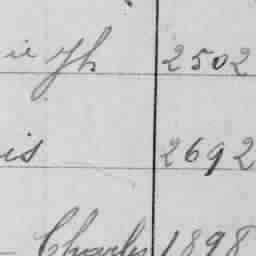 ie Jh 2502
is 2692
Charles 1898